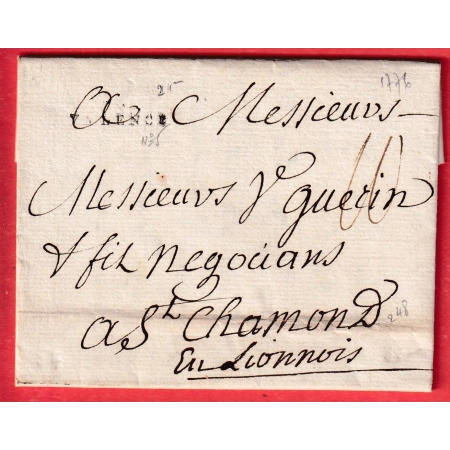 25 1776
A Messieurs
VALENCE
N°5
Messieurs Ve guerin 10
& fils negocians
a St Chamond
248
En Lionnois